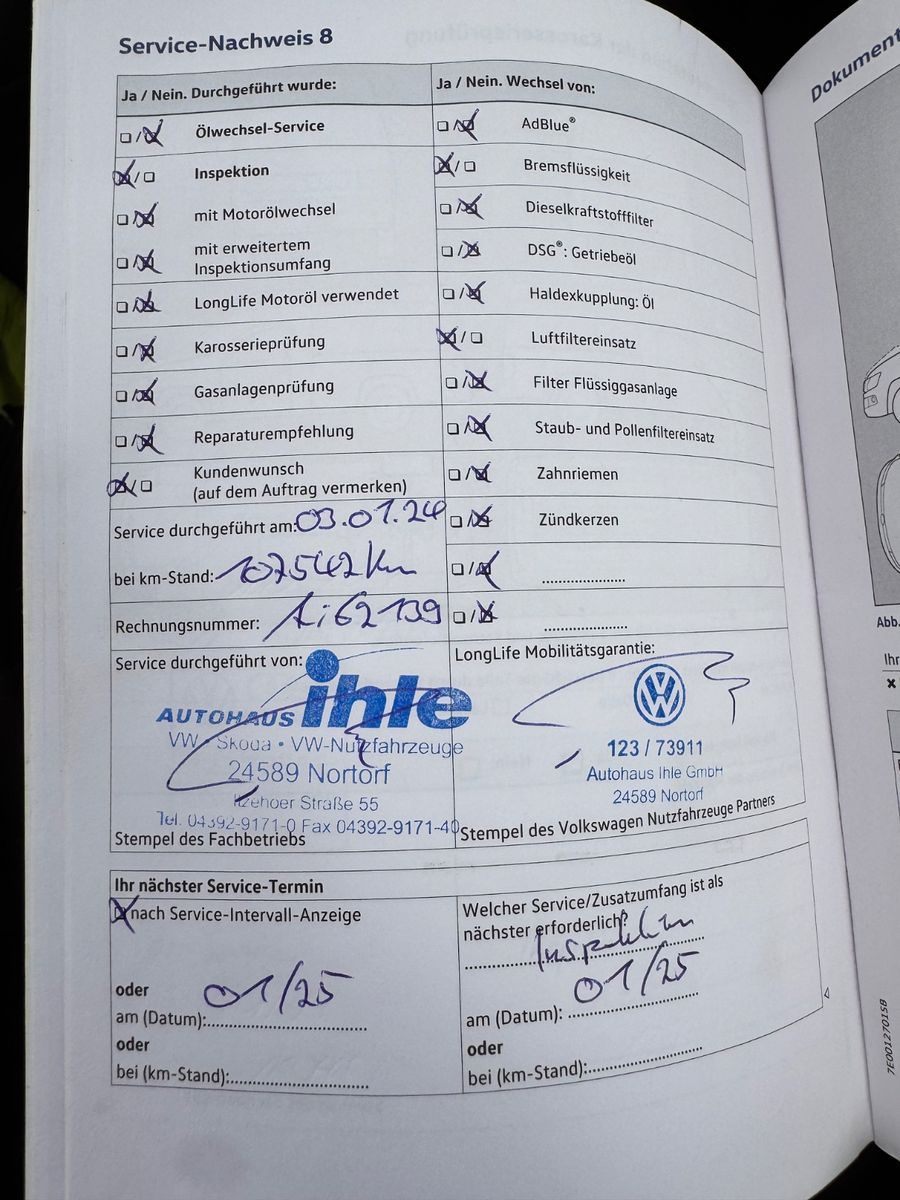 Service-Nachweis 8
Ja / Nein. Durchgeführt wurde:
Ölwechsel-Service
Inspektion
mit Motorölwechsel
mit erweitertem
Inspektionsumfang
LongLife Motoröl verwendet
Karosserieprüfung
Gasanlagenprüfung
Reparaturempfehlung
Kundenwunsch
(auf dem Auftrag vermerken)
Service durchgeführt am: 03.01.24
bei km-Stand: 107542 km
Rechnungsnummer: Ai62139
Service durchgeführt von:
AUTOHAUS ihle
VW • Skoda • VW-Nutzfahrzeuge
24589 Nortorf
Itzehoer Straße 55
Tel. 04392-9171-0 Fax 04392-9171-40
Stempel des Fachbetriebs
Ja / Nein. Wechsel von:
AdBlue®
Bremsflüssigkeit
Dieselkraftstofffilter
DSG®: Getriebeöl
Haldexkupplung: Öl
Luftfiltereinsatz
Filter Flüssiggasanlage
Staub- und Pollenfiltereinsatz
Zahnriemen
Zündkerzen
LongLife Mobilitätsgarantie:
VW
123 / 73911
Autohaus Ihle GmbH
24589 Nortorf
Stempel des Volkswagen Nutzfahrzeuge Partners
Ihr nächster Service-Termin
nach Service-Intervall-Anzeige
oder
01/25
am (Datum):
oder
bei (km-Stand):
Welcher Service/Zusatzumfang ist als
nächster erforderlich?
Inspektion
01/25
am (Datum):
oder
bei (km-Stand):
Dokument
Abb.
Ihr
7E0012701SB